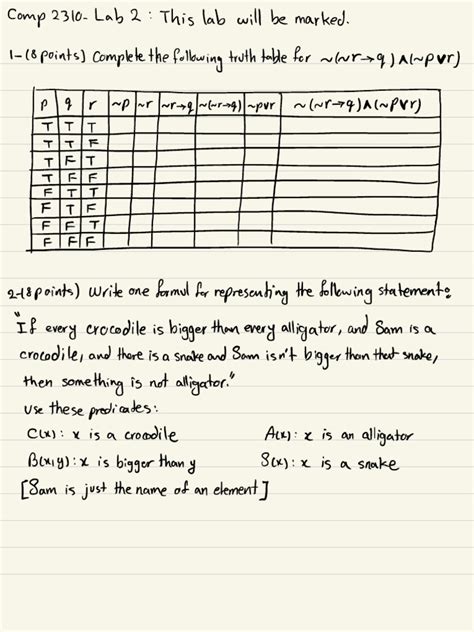 Comp 2310- Lab 2 : This lab will be marked.
1-(8 points) Complete the following truth table for ~(~r→q)∧(~p∨r)
p q r ~p ~r ~r→q ~(~r→q) ~p∨r ~(~r→q)∧(~p∨r)
T T T
T T F
T F T
T F F
F T T
F T F
F F T
F F F
2-(8 points) Write one formul for representing the following statement:
"If every crocodile is bigger than every alligator, and Sam is a
crocodile, and there is a snake and Sam isn't bigger than that snake,
then something is not alligator."
Use these predicades:
C(x): x is a crocodile A(x): x is an alligator
B(x,y): x is bigger than y S(x): x is a snake
[Sam is just the name of an element]